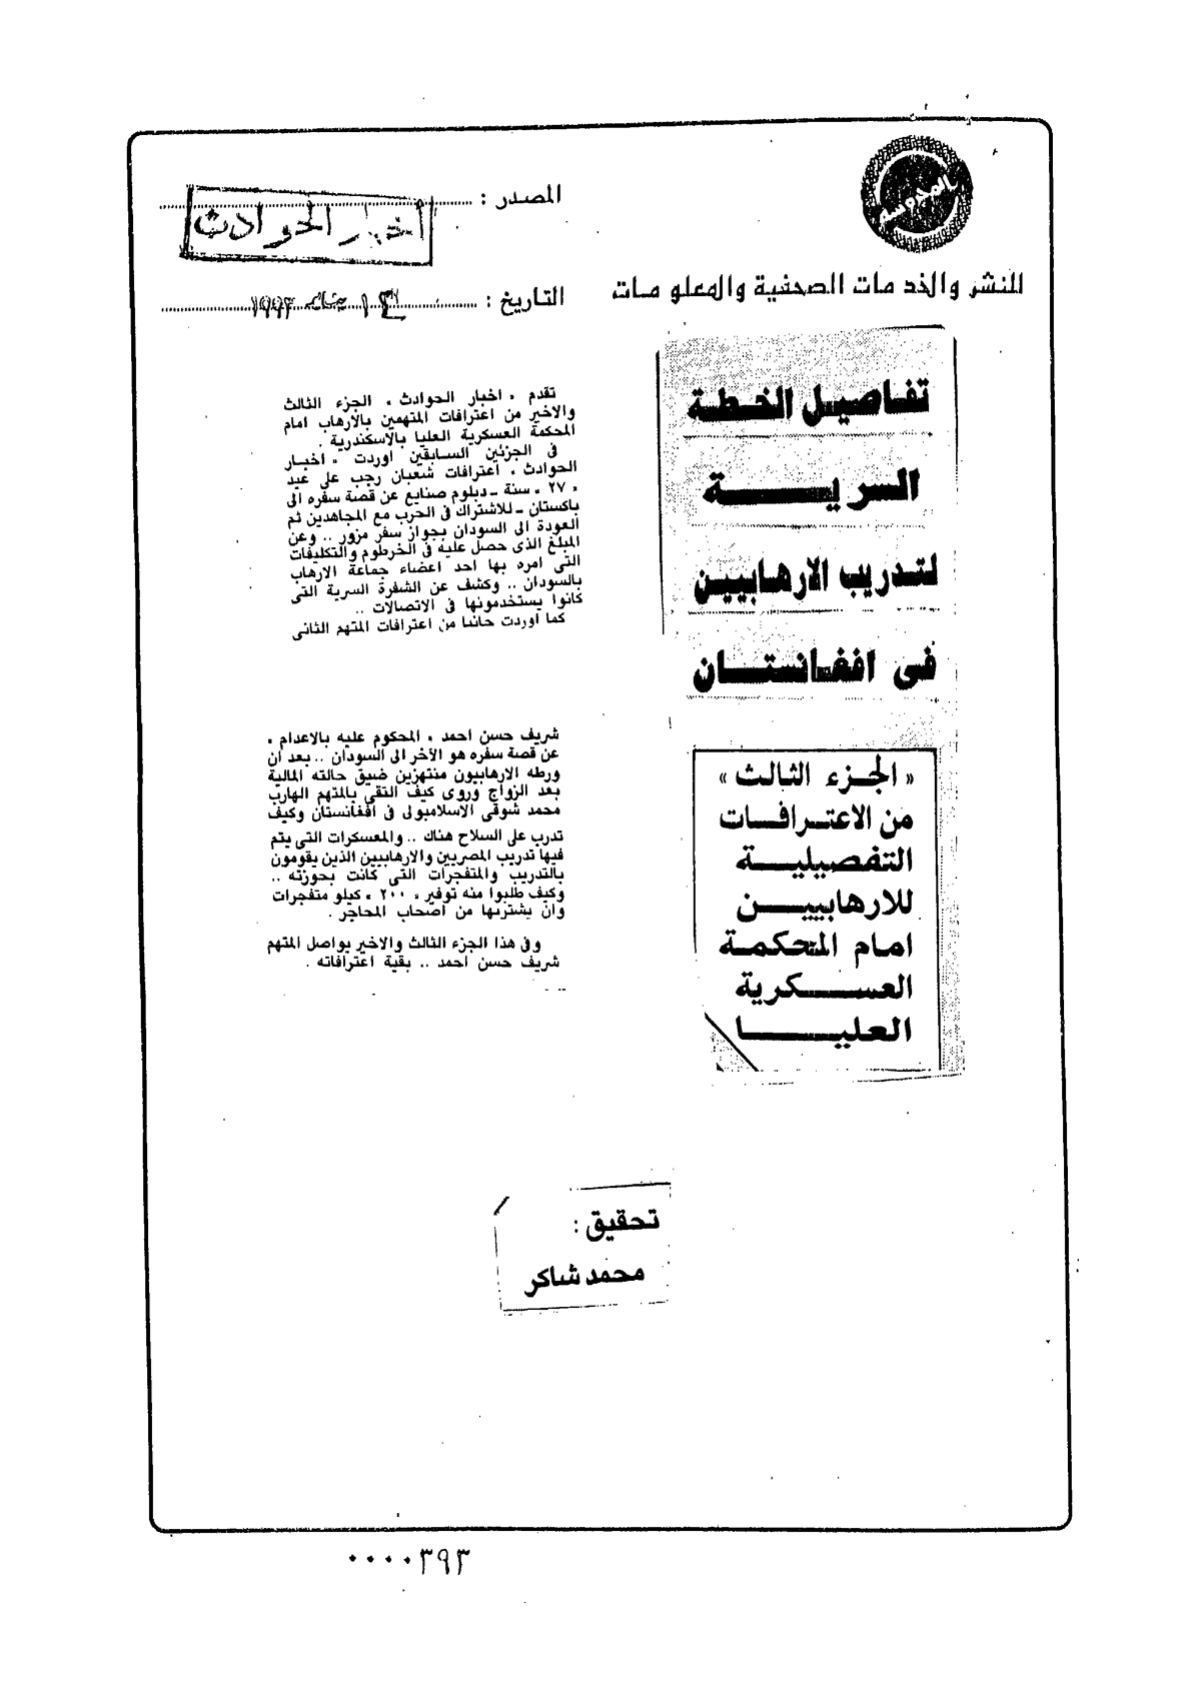 المصدر :
اخبار الحوادث
للنشر والخدمات الصحفية والمعلومات
التاريخ :
تفاصيل الخطة
السرية
لتدريب الارهابيين
فى افغانستان
« الجزء الثالث »
من الاعترافات
التفصيلية
للارهابيين
امام المحكمة
العسكرية
العليا
تقدم « اخبار الحوادث » الجزء الثالث
والاخير من اعترافات المتهمين بالارهاب امام
المحكمة العسكرية العليا بالاسكندرية .
فى الجزئين السابقين اوردت « اخبار
الحوادث » اعترافات شعبان رجب على عبد
« ٢٧ » سنة ـ دبلوم صنايع عن قصة سفره الى
باكستان ـ للاشتراك فى الحرب مع المجاهدين ثم
العودة الى السودان بجواز سفر مزور .. وعن
المبلغ الذى حصل عليه فى الخرطوم والتكليفات
التى امره بها احد اعضاء جماعة الارهاب
بالسودان .. وكشف عن الشفرة السرية التى
كانوا يستخدمونها فى الاتصالات ..
كما اوردت جانبا من اعترافات المتهم الثانى
شريف حسن احمد « المحكوم عليه بالاعدام »
عن قصة سفره هو الآخر الى السودان .. بعد ان
ورطه الارهابيون منتهزين ضيق حالته المالية
بعد الزواج وروى كيف التقى بالمتهم الهارب
محمد شوقى الاسلامبولى فى افغانستان وكيف
تدرب على السلاح هناك .. والمعسكرات التى يتم
فيها تدريب المصريين والارهابيين الذين يقومون
بالتدريب والمتفجرات التى كانت بحوزته ..
وكيف طلبوا منه توفير « ٢٠٠ » كيلو متفجرات
وان يشتريها من اصحاب المحاجر .
وفى هذا الجزء الثالث والاخير يواصل المتهم
شريف حسن احمد .. بقية اعترافاته .
تحقيق :
محمد شاكر
٠٠٠٠٣٩٣